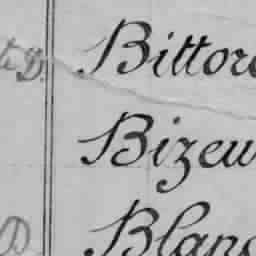 Bittor
Bizew
Blanc